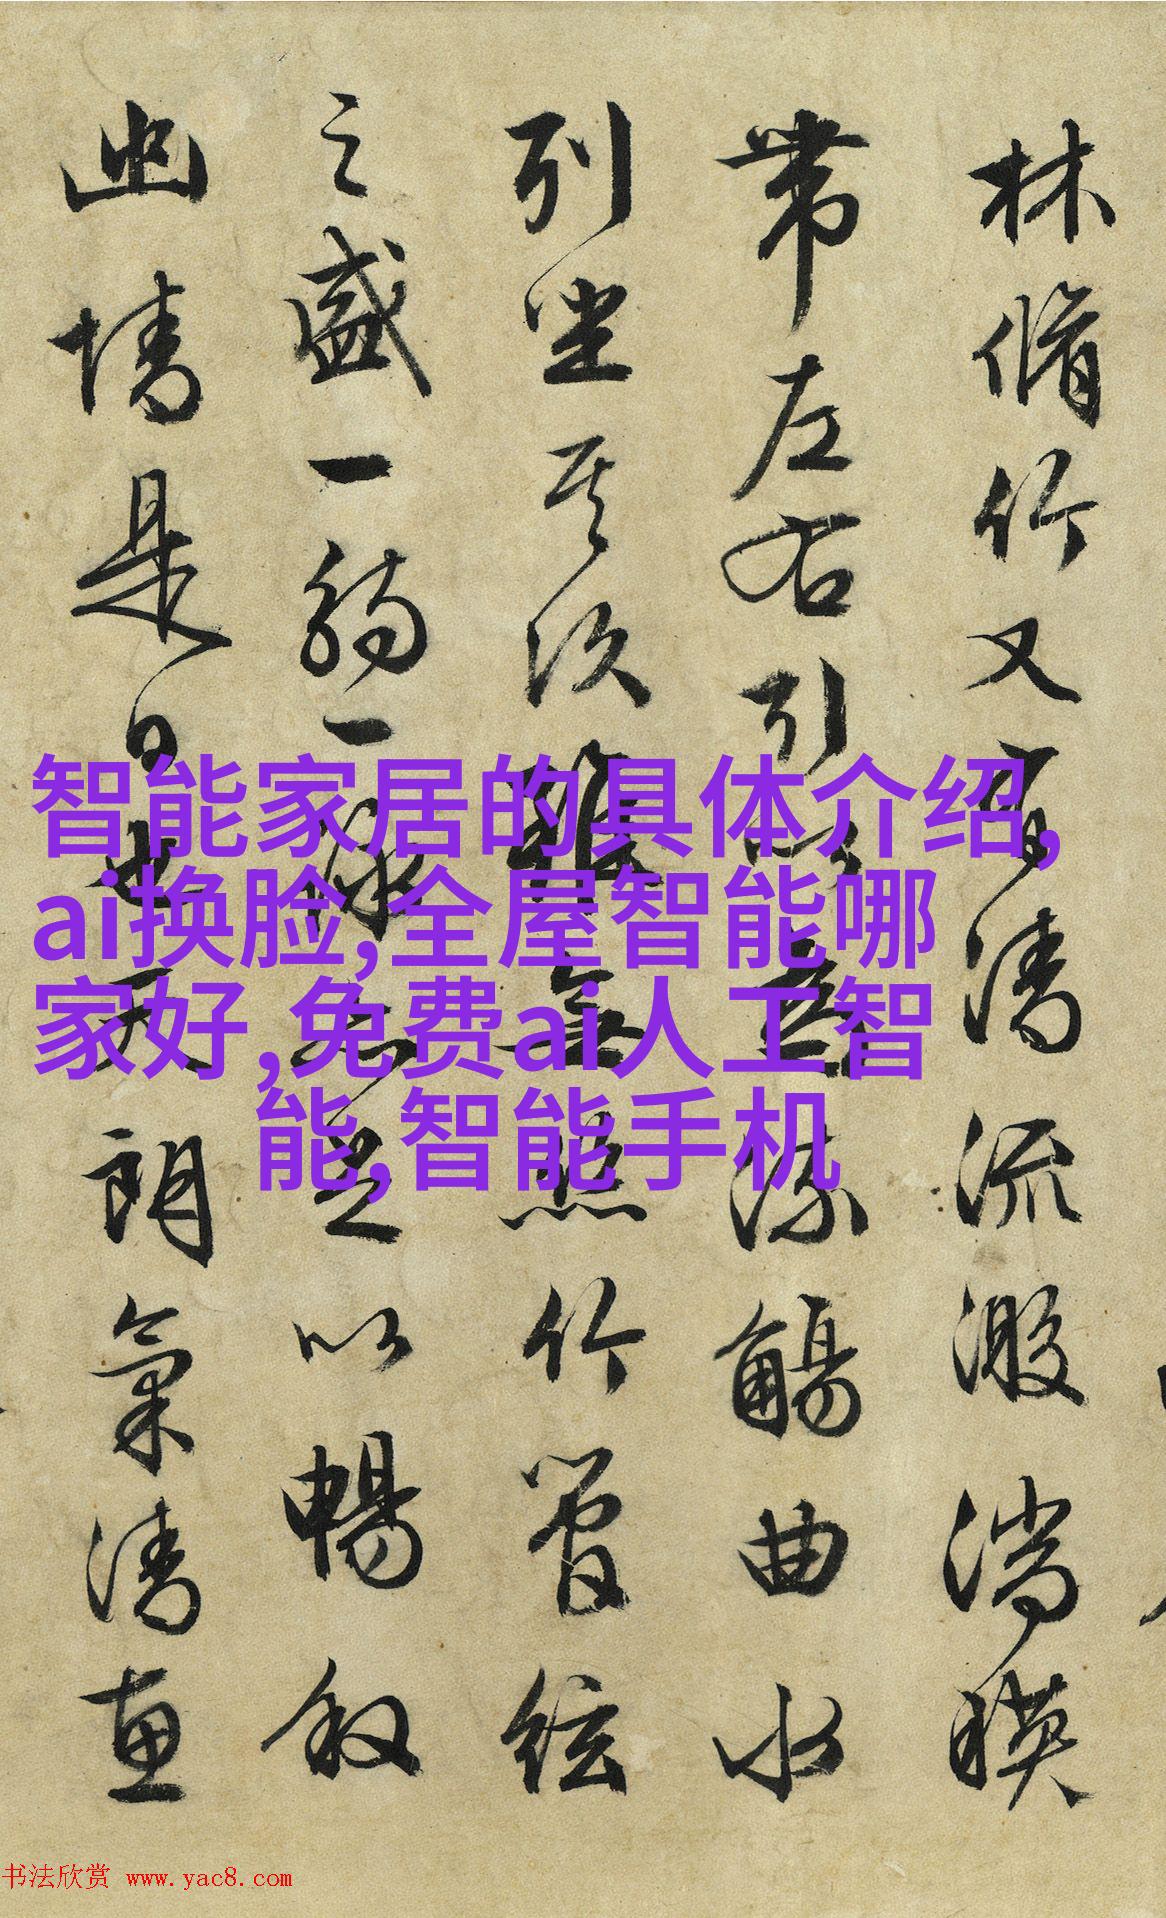 林脩竹又有清流激湍暎
帶左右引以為流觴曲水
列坐其次雖無絲竹管絃
之盛一觴一詠亦足以暢叙
幽情是日也天朗氣清惠
智能家居的具体介绍,
ai换脸,全屋智能哪
家好,免费ai人工智
能,智能手机
书法欣赏 www.yac8.com